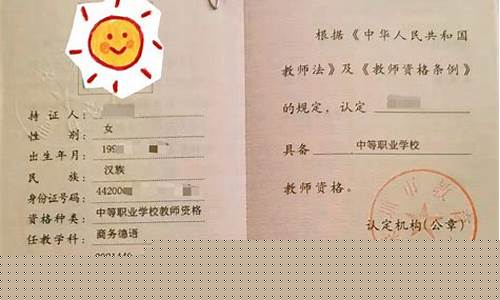 持证人:
性 别: 女
出生年月: 199
民 族: 汉族
身份证号码: 44200
资格种类: 中等职业学校教师资格
任教学科: 商务德语
根据《中华人民共和国
教师法》及《教师资格条例》
的规定，认定
具备 中等职业学校
教师资格。
认定机构(公章)